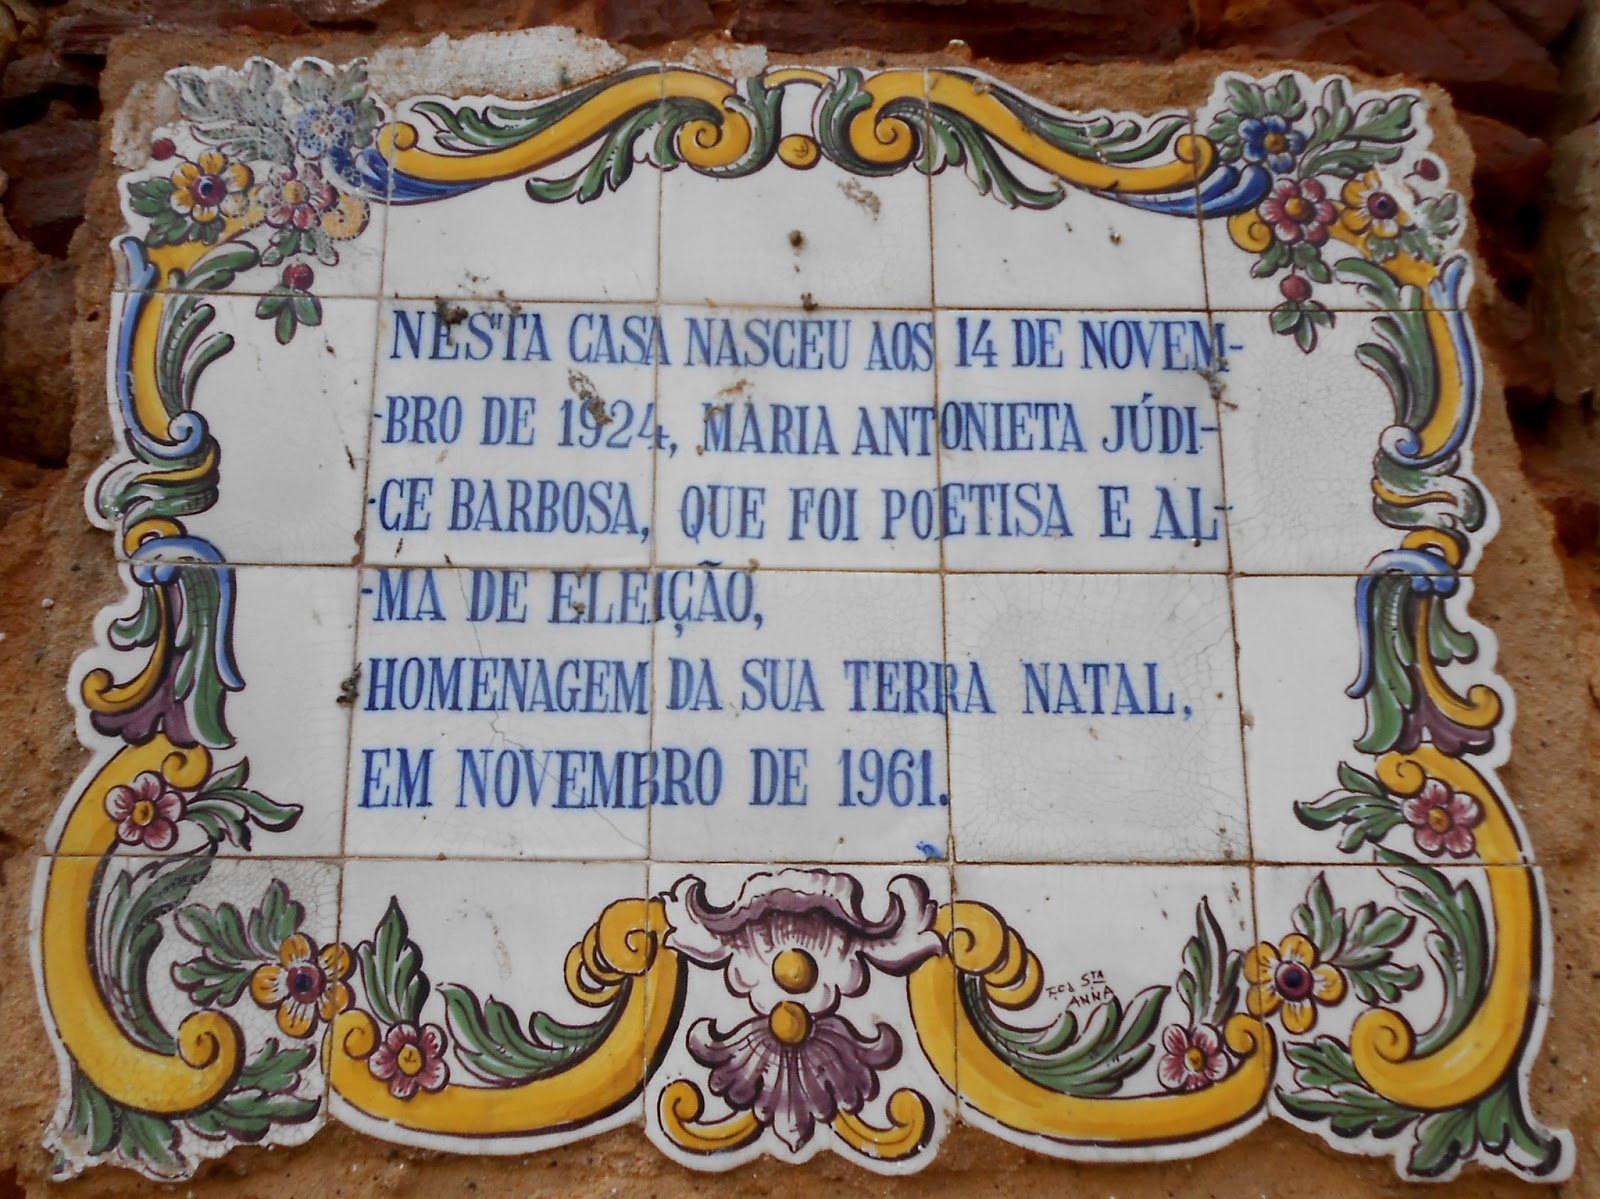 NESTA CASA NASCEU AOS 14 DE NOVEM-
-BRO DE 1924, MARIA ANTONIETA JÚDI-
-CE BARBOSA, QUE FOI POETISA E AL-
-MA DE ELEIÇÃO,
HOMENAGEM DA SUA TERRA NATAL,
EM NOVEMBRO DE 1961.
F.ca STA
ANNA